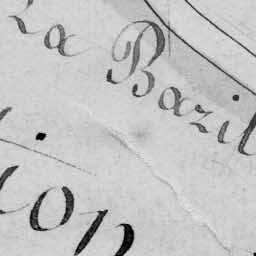 La Bazil
ion